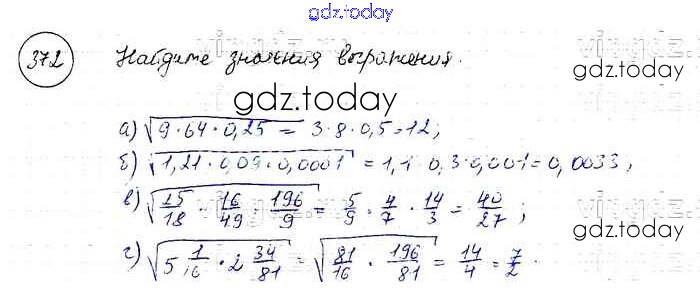 gdz.today
372 Найдите значения выражения.
gdz.today
а) √9·64·0,25 = 3·8·0,5=12;
б) √1,21·0,09·0,0001 = 1,1·0,3·0,001=0,0033;
в) √25/18 · 16/49 · 196/9 = 5/9 · 4/7 · 14/3 = 40/27;
г) √5 1/16 · 2 34/81 = √81/16 · 196/81 = 14/4 = 7/2.
gdz.today